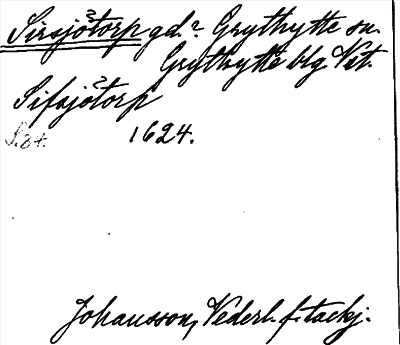 Sirsjötorp gd.? Grythytte sn.
Grythytte blg Vst.
Sifsjötorp
1624.
S. 84.
Johansson, Vederl. f. tackj.